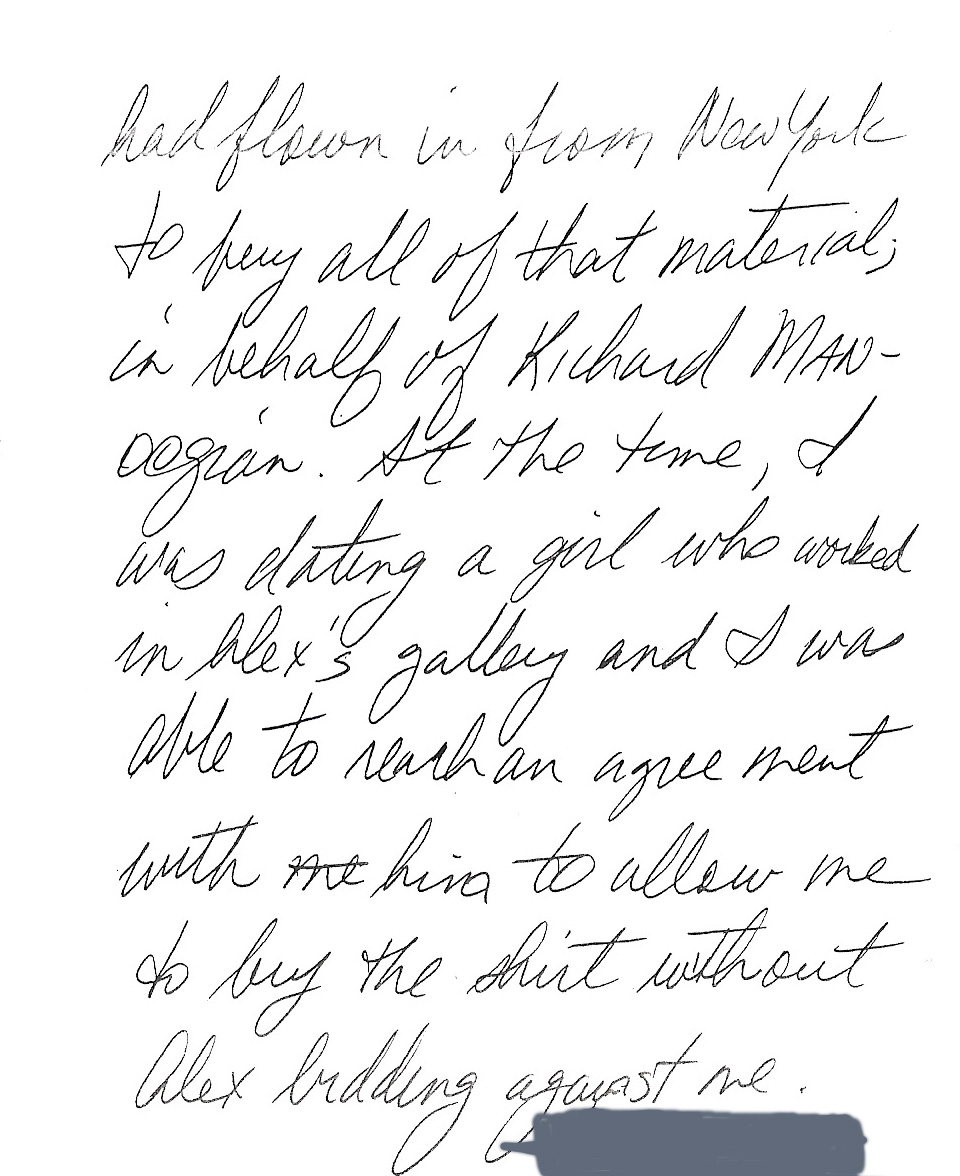 had flown in from New York
to buy all of that material,
in behalf of Richard MAN-
OOgian. At the time, I
was dating a girl who worked
in Alex's gallery and I was
able to reach an agreement
with me him to allow me
to buy the shirt without
Alex bidding against me.